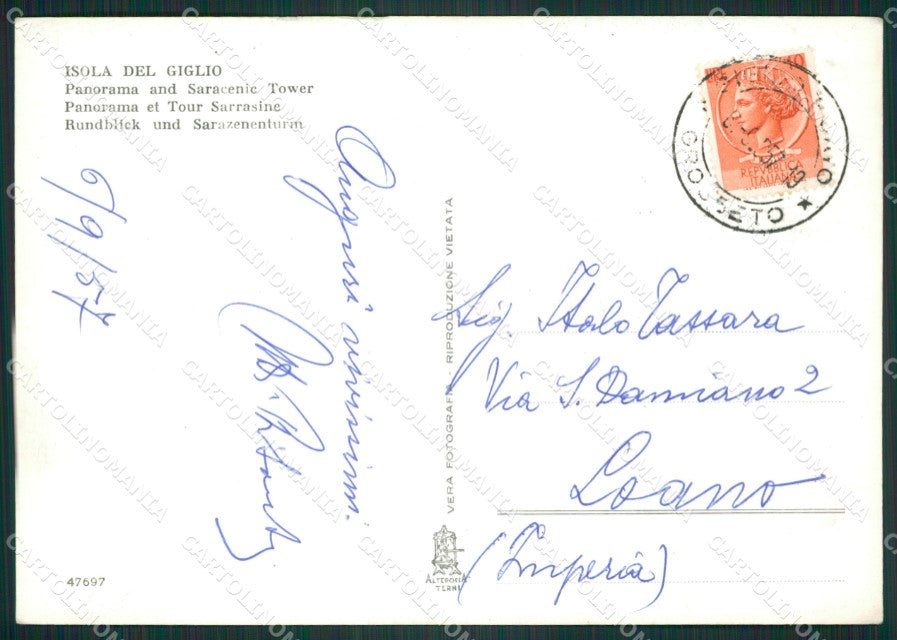 ISOLA DEL GIGLIO
Panorama and Saracenic Tower
Panorama et Tour Sarrasine
Rundblick und Sarazenenturm
6/9/57
Auguri vivissimi.
VERA FOTOGRAFIA - RIPRODUZIONE VIETATA
ALTEROCCA
TERNI
47697
REPVBBLICA
ITALIANA
GROSSETO
Sig. Italo Tassara
Via S. Damiano 2
Loano
(Imperia)
CARTOLINOMANIA